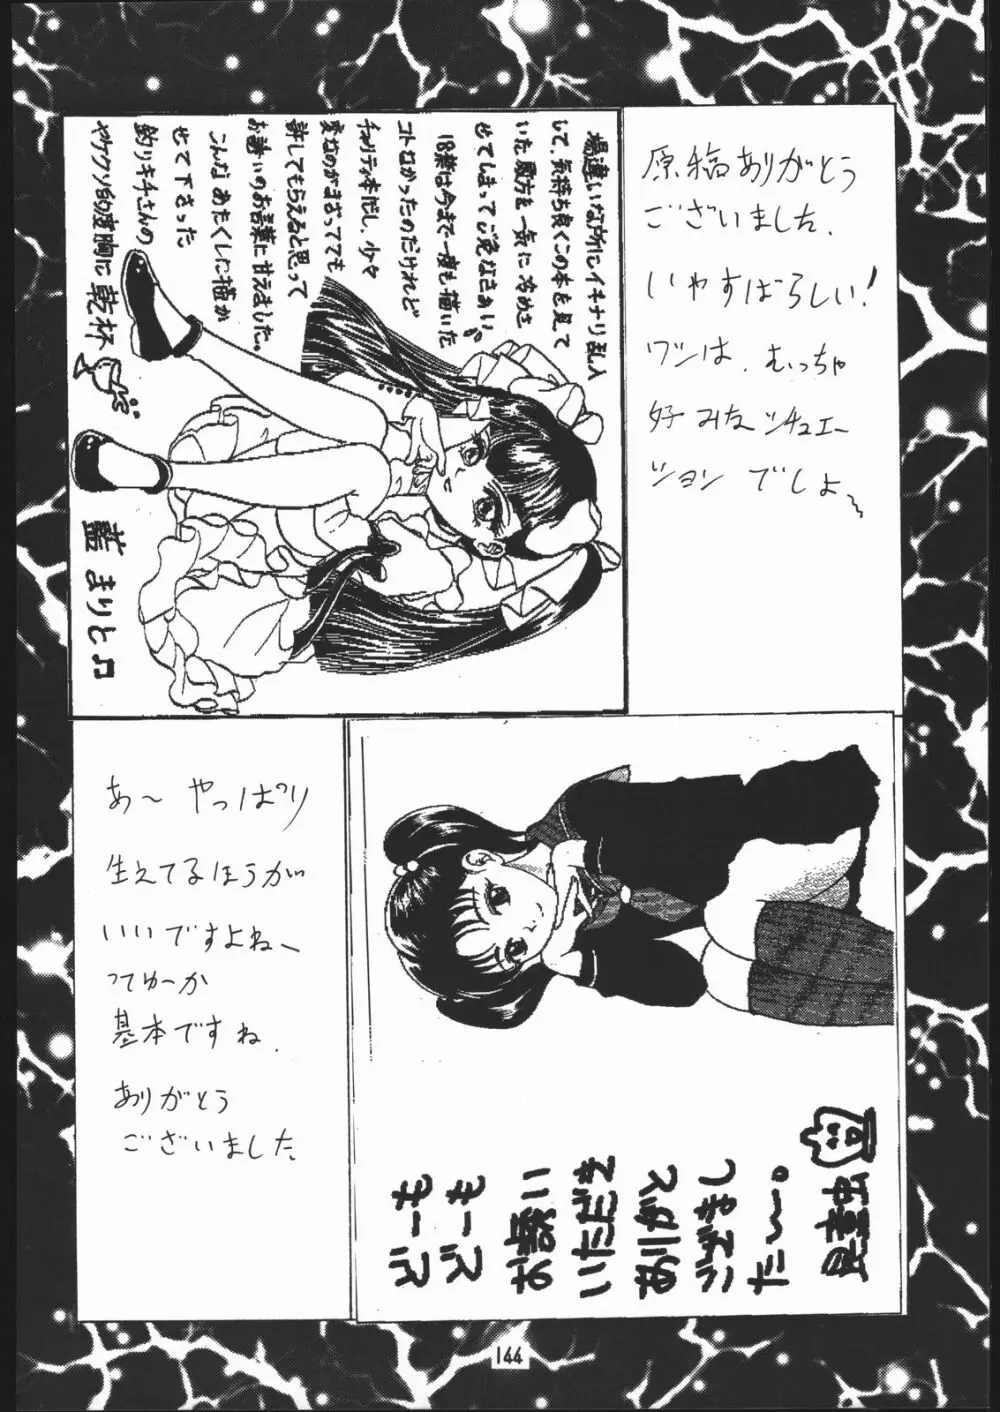 原稿ありがとう
ございました.
いやすばらしい!
ワシは、むっちゃ
好みなシチュエー
ションでしょ〜
場違いな所にイキナリ乱入
して、気持ち良くこの本を見て
いた殿方を一気に冷めさ
せてしまってご免なさぁい
18禁は今まで一度も描いた
コトなかったのだけれど
チャリティ本だし、少々
変なのがまざってても
許してもらえると思って
お誘いのお言葉に甘えました。
こんなあたくしに描か
せて下さった
釣りキチさんの
ヤケクソ的度胸に乾杯
藍まりと♫
あ〜やっぱり
生えてるほうが
いいですよねー
ってゆーか
基本ですね.
ありがとう
ございました.
どーも
どーも
お誘い
いただき
ありがと
ござまし
た〜。
昆童虫
144